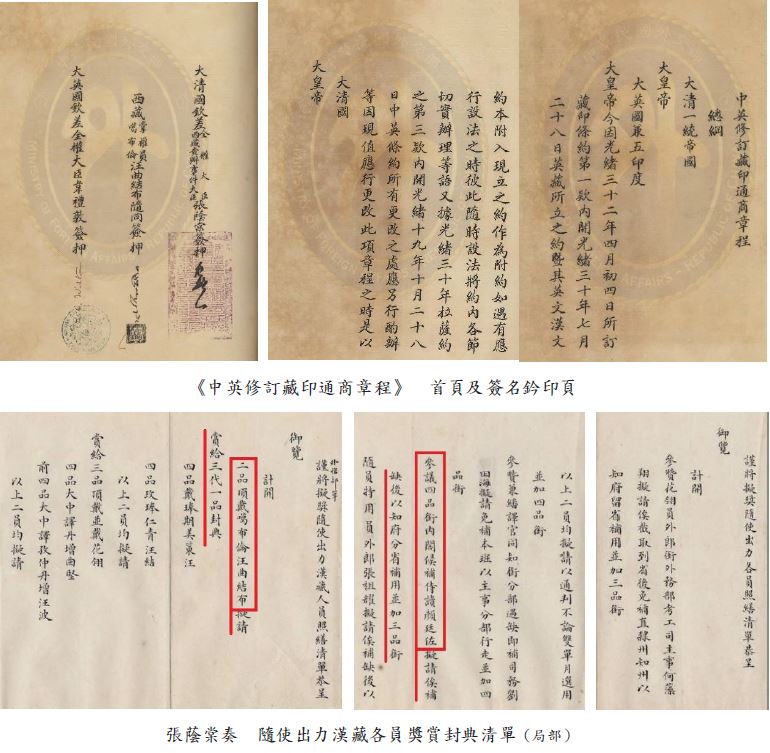 中英修訂藏印通商章程
總綱
大清一統帝國
大皇帝
大英國兼五印度
大皇帝今因光緒三十二年四月初四日所訂
藏印條約第一款內開光緒三十年七月
二十八日英藏所立之約暨其英文漢文
約本附入現立之約作為附約如遇有應
行設法之時彼此隨時設法將約內各節
切實辦理等語又據光緒三十年拉薩約
之第三款內開光緒十九年十月二十八
日中英條約所有更改之處應另行酌辦
等因現值應行更改此項章程之時是以
大清國
大皇帝
大清國欽差全權大臣西藏查辦事件大臣張蔭棠簽押
西藏掌權員噶布倫汪曲結布隨同簽押
大英國欽差全權大臣韋禮敦簽押
《中英修訂藏印通商章程》 首頁及簽名鈐印頁
謹將擬獎隨使出力各員照繕清單恭呈
御覽
計開
參贊花翎員外郎銜外務部考工司主事何藻
翔擬請俟截取到省後免補直隸州知州以
知府留省補用並加三品銜
以上二員均擬請以通判不論雙單月選用
並加四品銜
參贊兼繙譯官同知銜分部遇缺即補司務劉
田海擬請免補本班以主事分部行走並加四
品銜
參議四品銜內閣候補侍讀顏廷佐擬請俟補
缺後以知府分省補用並加三品銜
隨員特用員外郎張祖耀擬請俟補缺後以
謹將擬獎隨使出力漢藏人員照繕清單恭呈
御覽
計開
二品頂戴噶布倫汪曲結布擬請
賞給三代一品封典
四品戴琫期美策汪
四品孜琫仁青汪結
以上二員均擬請
賞給三品頂戴並戴花翎
四品大中譯丹增堅
前四品大中譯孜仲丹增汪波
以上二員均擬請
張蔭棠奏 隨使出力漢藏各員獎賞封典清單（局部）